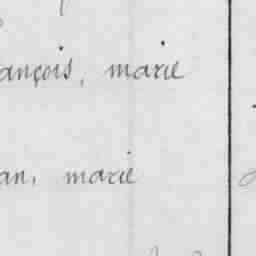 ançois, marie
an, marie